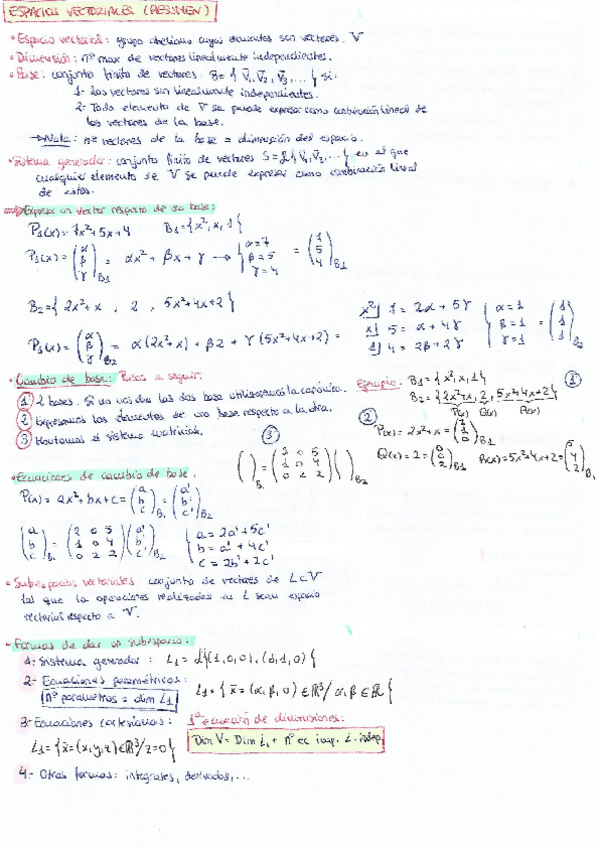 ESPACIOS VECTORIALES (RESUMEN)
• Espacio vectorial: grupo abeliano cuyos elementos son vectores. V
• Dimensión: nº max de vectores linealmente independientes.
• Base: conjunto finito de vectores. B = { V̄₁, V̄₂, V̄₃, ... } si:
1- Los vectores son linealmente independientes.
2- Todo elemento de V se puede expresar como combinación lineal de
los vectores de la base.
→ Nota: nº vectores de la base = dimensión del espacio.
• Sistema generador: conjunto finito de vectores S = L{ V̄₁, V̄₂, ... } en el que
cualquier elemento de V se puede expresar como combinación lineal
de estos.
Expresar un vector respecto de su base:
P₁(x) = 7x²+5x+4 B₁ = {x², x, 1}
P₁(x) = (α β γ)B₁ = αx² + βx + γ → { α=7 β=5 γ=4 = (7 5 4)B₁
B₂ = { 2x²+x , 2 , 5x²+4x+2 }
P₁(x) = (α β γ)B₂ = α(2x²+x) + β2 + γ(5x²+4x+2) =
x²] 7 = 2α + 5γ
x] 5 = α + 4γ
1] 4 = 2β + 2γ
{ α=1 β=1 γ=1 = (1 1 1)B₂
• Cambio de base: Pasos a seguir:
① 2 bases. Si no nos dan las dos base utilizamos la canónica.
② Expresamos los elementos de una base respecto a la otra.
③ Montamos el sistema matricial.
Ejemplo: B₁ = {x², x, 1} ①
B₂ = {2x²+x, 2, 5x²+4x+2}
P(x) Q(x) R(x)
② P(x) = 2x²+x = (2 1 0)B₁
Q(x) = 2 = (0 0 2)B₁ R(x) = 5x²+4x+2 = (5 4 2)B₁
③
( )B₁ = (2 0 5 / 1 0 4 / 0 2 2) ( )B₂
• Ecuaciones de cambio de base.
P(x) = ax²+bx+c = (a b c)B₁ = (a' b' c')B₂
(a b c)B₁ = (2 0 5 / 1 0 4 / 0 2 2) (a' b' c')B₂
{ a = 2a' + 5c'
b = a' + 4c'
c = 2b' + 2c'
• Subespacios vectoriales: conjunto de vectores de L⊂V
tal que la operaciones realizadas en L sean espacio
vectorial respecto a V.
• Formas de dar un subespacio:
1- Sistema generador: L₁ = L{(1,0,0), (1,1,0)}
2- Ecuaciones paramétricas:
Nº parámetros = dim L₁
L₁ = { x̄ = (α, β, 0) ∈ ℝ³ / α, β ∈ ℝ }
3- Ecuaciones cartesianas:
L₁ = { x̄ = (x,y,z) ∈ ℝ³ / z=0 }
1ª ecuación de dimensiones:
Dim V = Dim L₁ + nº ec. imp. L. indep.
4.- Otras formas: integrales, derivadas, ...